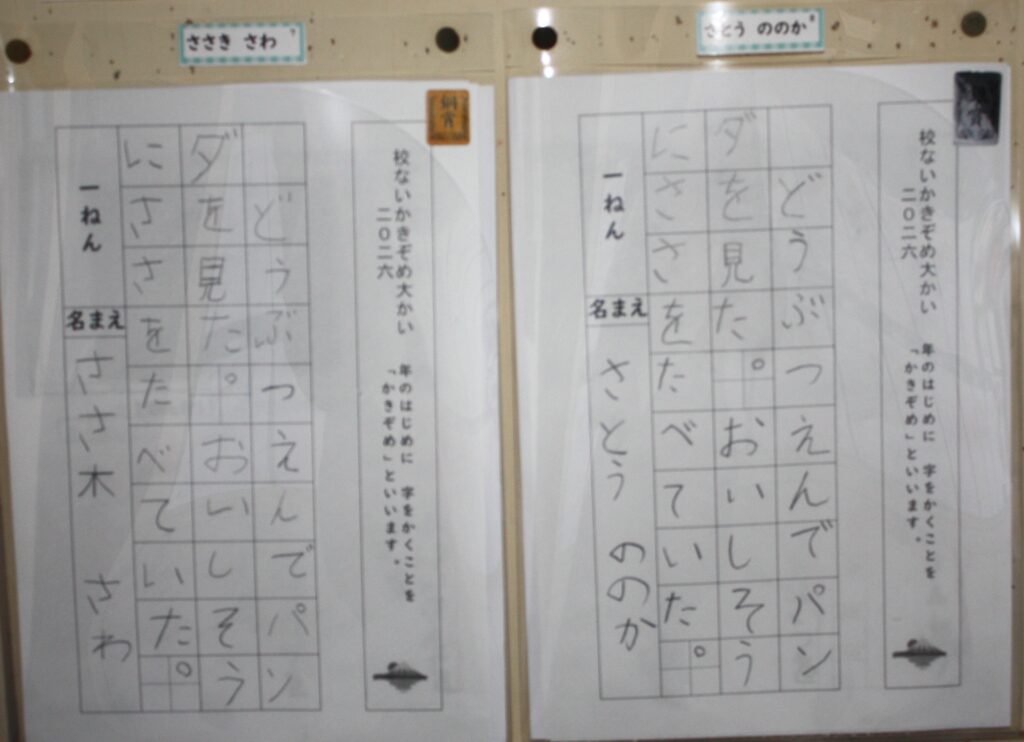 ささき さわ
銅賞
校ないかきぞめ大かい
二〇二六
年のはじめに 字をかくことを
「かきぞめ」といいます。
どうぶつえんでパン
ダを見た。おいしそう
にささをたべていた。
一ねん
名まえ
ささ木 さわ
さとう ののか
賞
校ないかきぞめ大かい
二〇二六
年のはじめに 字をかくことを
「かきぞめ」といいます。
どうぶつえんでパン
ダを見た。おいしそう
にささをたべていた。
一ねん
名まえ
さとう ののか